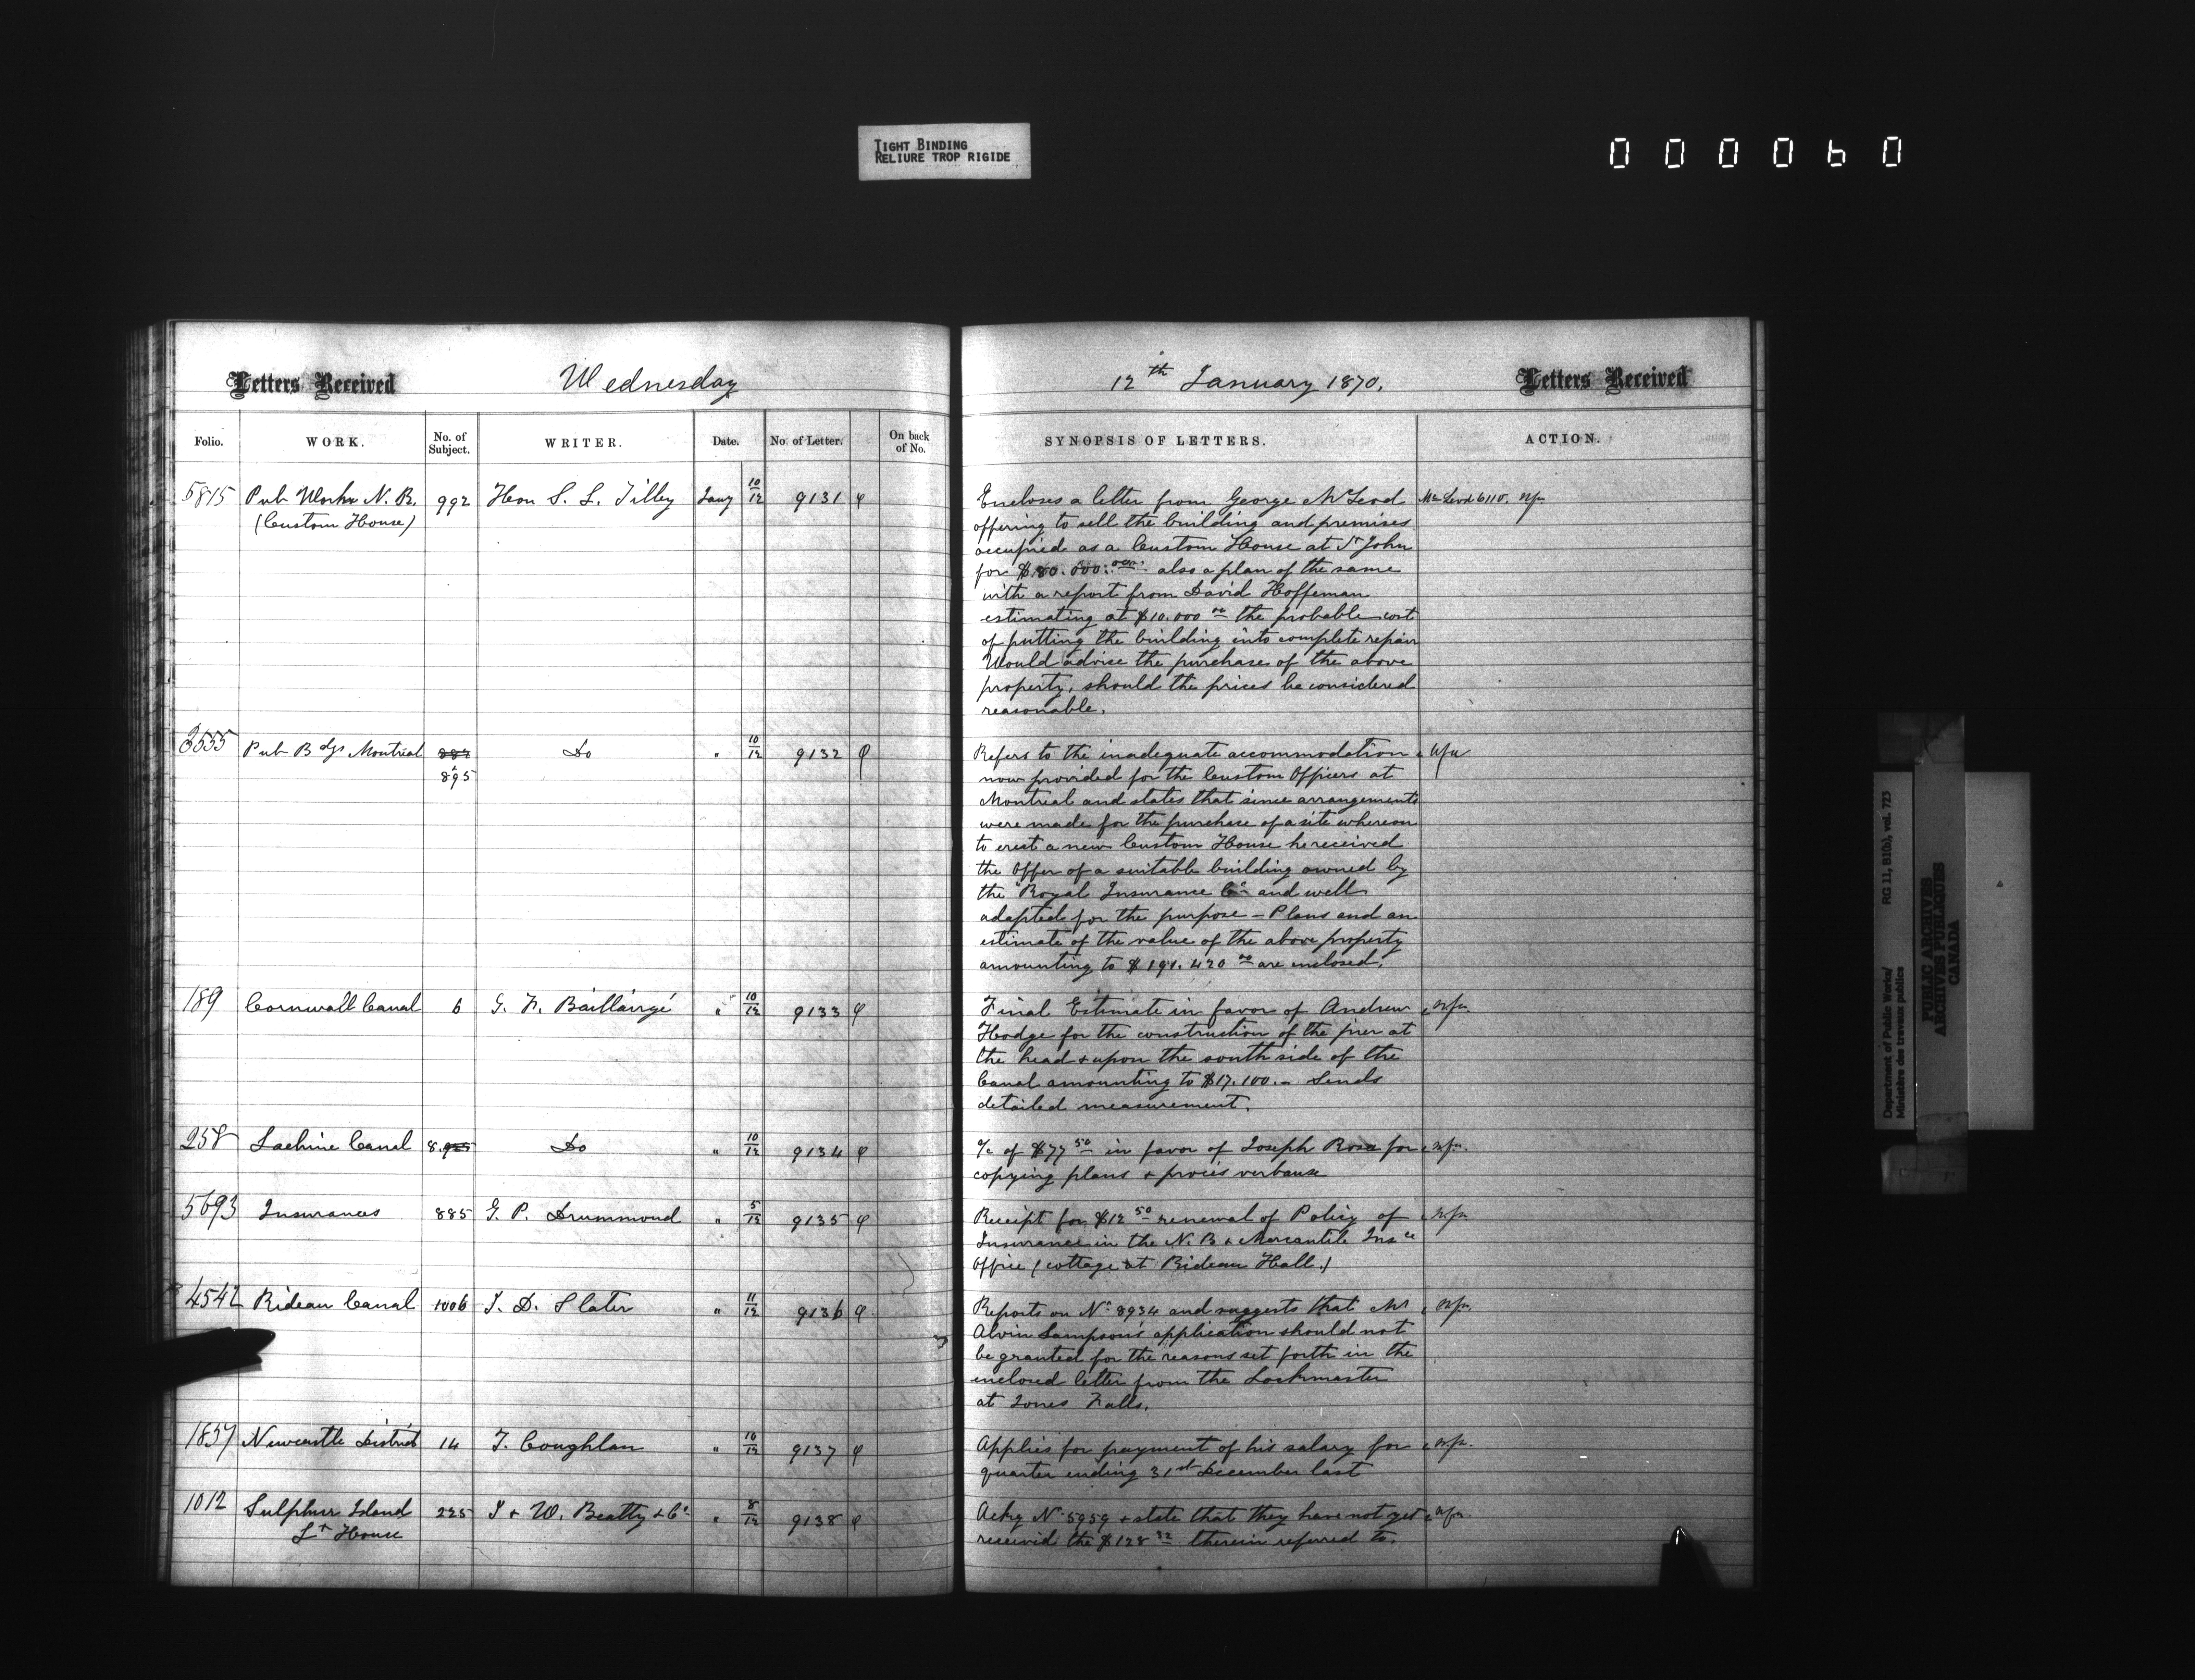 TIGHT BINDING
RELIURE TROP RIGIDE
000060
Letters Received
Wednesday
Folio. WORK. No. of Subject. WRITER. Date. No. of Letter. On back of No.
5815 Pub Works N. B. 992 Hon S. L. Tilley Jany 10/12 9131
(Custom House)
3555 Pub Bdgs Montreal 887 Do " 10/12 9132
895
189 Cornwall Canal 6 G. F. Baillairgé " 10/12 9133
258 Lachine Canal 8. Do " 10/12 9134
5693 Insurances 885 G. P. Drummond " 5/12 9135
4542 Rideau Canal 1006 J. D. Slater " 11/12 9136
1857 Newcastle District 14 T. Coughlan " 10/12 9137
1012 Sulphur Island 225 J & W. Beatty & Co " 8/12 9138
Lt House
12th January 1870.
Letters Received
SYNOPSIS OF LETTERS. ACTION.
Encloses a letter from George McLeod McLeod 6110. Nfa
offering to sell the building and premises
occupied as a Custom House at St John
for $80.000. also a plan of the same
with a report from David Hoffeman
estimating at $10.000 00 the probable cost
of putting the building into complete repair
Would advise the purchase of the above
property, should the prices be considered
reasonable.
Refers to the inadequate accommodation Nfa
now provided for the Custom Officers at
Montreal and states that since arrangements
were made for the purchase of a site whereon
to erect a new Custom House he received
the offer of a suitable building owned by
the "Royal Insurance Co and well
adapted for the purpose – Plans and an
estimate of the value of the above property
amounting to $191.420 00 are inclosed.
Final Estimate in favor of Andrew Nfa.
Hodge for the construction of the pier at
the head & upon the south side of the
Canal amounting to $17.100.– Sends
detailed measurement.
a/c of $77 50 in favor of Joseph Rosa for Nfa.
copying plans & procès verbaux
Receipt for $12 50 renewal of Policy of Nfa
Insurance in the N. B & Mercantile Insce
Office (cottage at Rideau Hall.)
Reports on No 8934 and suggests that Mr Nfa.
Alvin Sampson's application should not
be granted for the reasons set forth in the
inclosed letter from the Lockmaster
at Jones Falls.
Applies for payment of his salary for Nfa.
quarter ending 31st December last
Ackg No 5959 & state that they have not yet Nfa.
received the $128 32 therein referred to.
Department of Public Works/ RG 11, B1(b), vol. 723
Ministère des travaux publics
PUBLIC ARCHIVES
ARCHIVES PUBLIQUES
CANADA